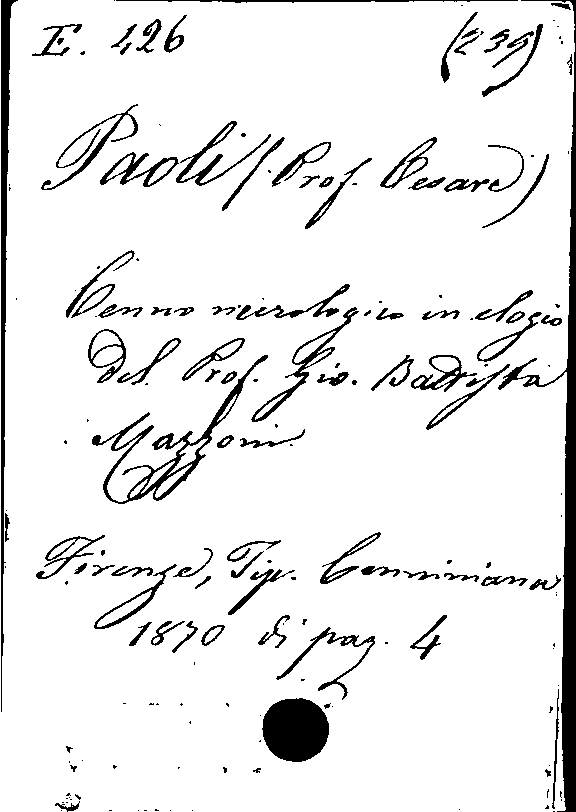 E. 426 (239)
Paoli (Prof. Cesare)
Cenno necrologico in elogio
del Prof. Gio. Battista
Mazzoni
Firenze, Tip. Cenniniana
1870 di pag. 4